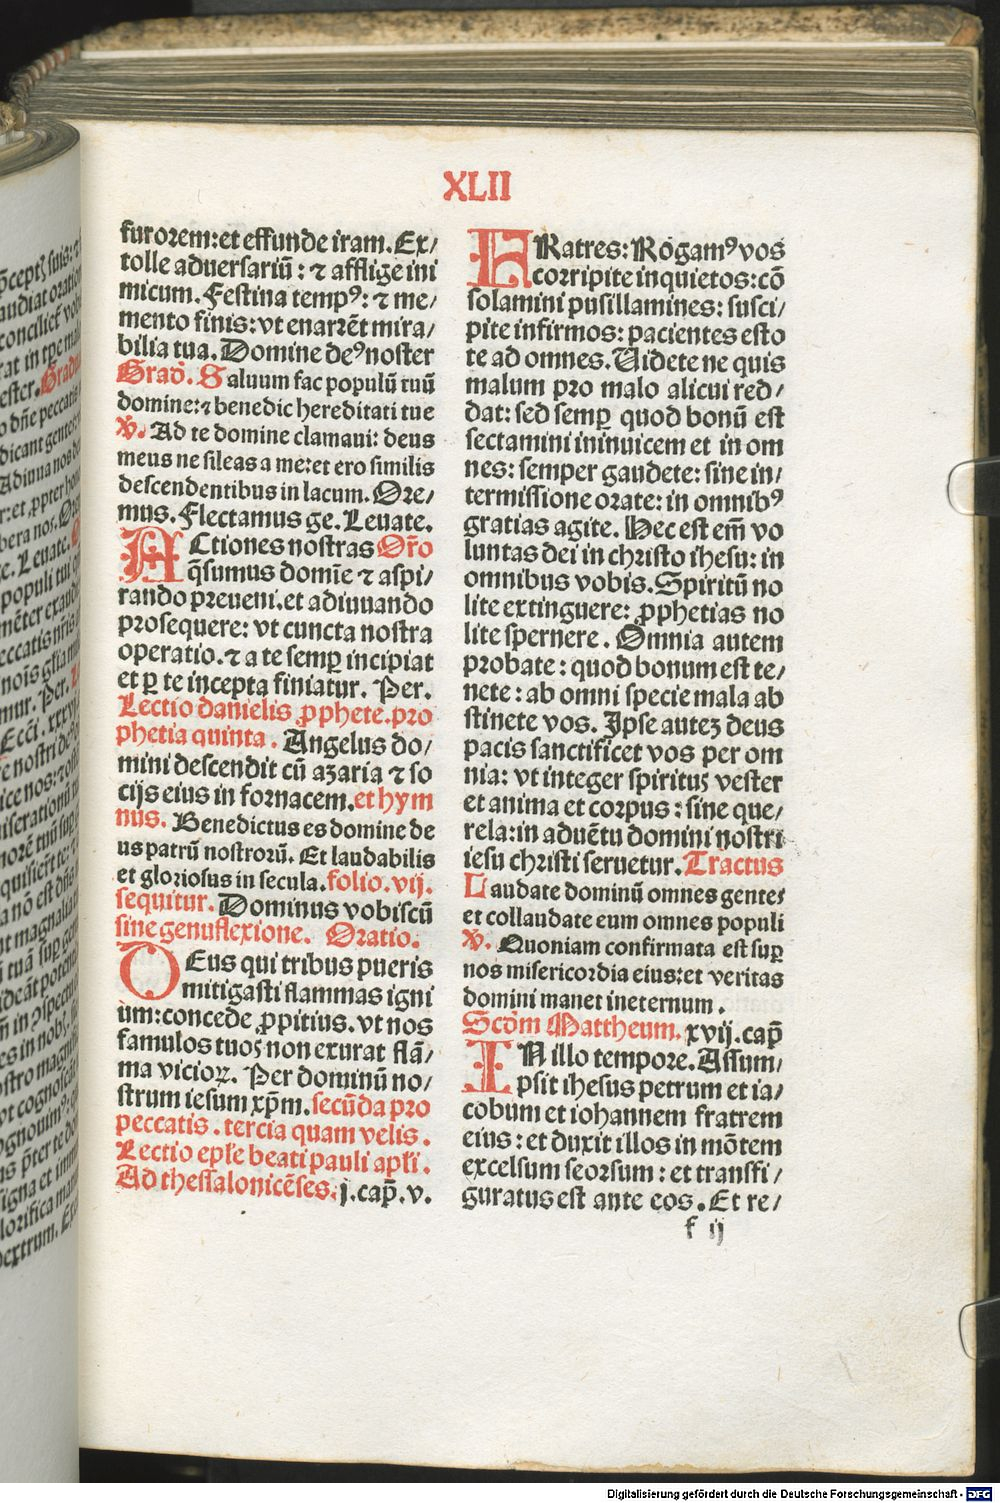 XLII
furorem: et effunde iram. Ex/
tolle aduersariū: ⁊ afflige ini
micum. Festina tempꝰ: ⁊ me/
mento finis: vt enarrēt mira/
bilia tua. Domine deꝰ noster
Grad̄. Saluum fac populū tuū
domine: ⁊ benedic hereditati tue
℣. Ad te domine clamaui: deus
meus ne sileas a me: et ero similis
descendentibus in lacum. Ore/
mus. Flectamus ge. Leuate.
ACtiones nostras Or̄o
q̄sumus domīe ⁊ aspi/
rando preueni. et adiuuando
prosequere: vt cuncta nostra
operatio. ⁊ a te semꝑ incipiat
et ꝑ te incepta finiatur. Per.
Lectio danielis ꝓphete. pro
phetia quinta. Angelus do/
mini descendit cū azaria ⁊ so
cijs eius in fornacem. et hym
nus. Benedictus es domine de
us patrū nostrorū. Et laudabilis
et gloriosus in secula. folio. vij.
sequitur. Dominus vobiscū
sine genuflexione. Oratio.
DEus qui tribus pueris
mitigasti flammas igni
um: concede ꝓpitius. vt nos
famulos tuos non exurat flā/
ma vicioꝝ. Per dominū no/
strum iesum xp̄m. secūda pro
peccatis. tercia quam velis.
Lectio ep̄le beati pauli ap̄li.
Ad thessalonicēses. j. cap̄. v.
FRatres: Rogamꝰ vos
corripite inquietos: cō
solamini pusillamines: susci/
pite infirmos: pacientes esto
te ad omnes. Uidete ne quis
malum pro malo alicui red/
dat: sed semꝑ quod bonū est
sectamini ininuicem et in om
nes: semper gaudete: sine in/
termissione orate: in omnibꝰ
gratias agite. Hec est em̄ vo
luntas dei in christo ihesu: in
omnibus vobis. Spiritū no
lite extinguere: ꝓphetias no
lite spernere. Omnia autem
probate: quod bonum est te/
nete: ab omni specie mala ab
stinete vos. Ipse autez deus
pacis sanctificet vos per om
nia: vt integer spiritus vester
et anima et corpus: sine que/
rela: in aduētu domini nostri
iesu christi seruetur. Tractus
Laudate dominū omnes gentes
et collaudate eum omnes populi
℣. Quoniam confirmata est suꝑ
nos misericordia eius: et veritas
domini manet ineternum.
Scd̄m Mattheum. xvij. cap̄
IN illo tempore. Assum/
psit ihesus petrum et ia/
cobum et iohannem fratrem
eius: et duxit illos in mōtem
excelsum seorsum: et transfi/
guratus est ante eos. Et re/
f ij
Digitalisierung gefördert durch die Deutsche Forschungsgemeinschaft - DFG